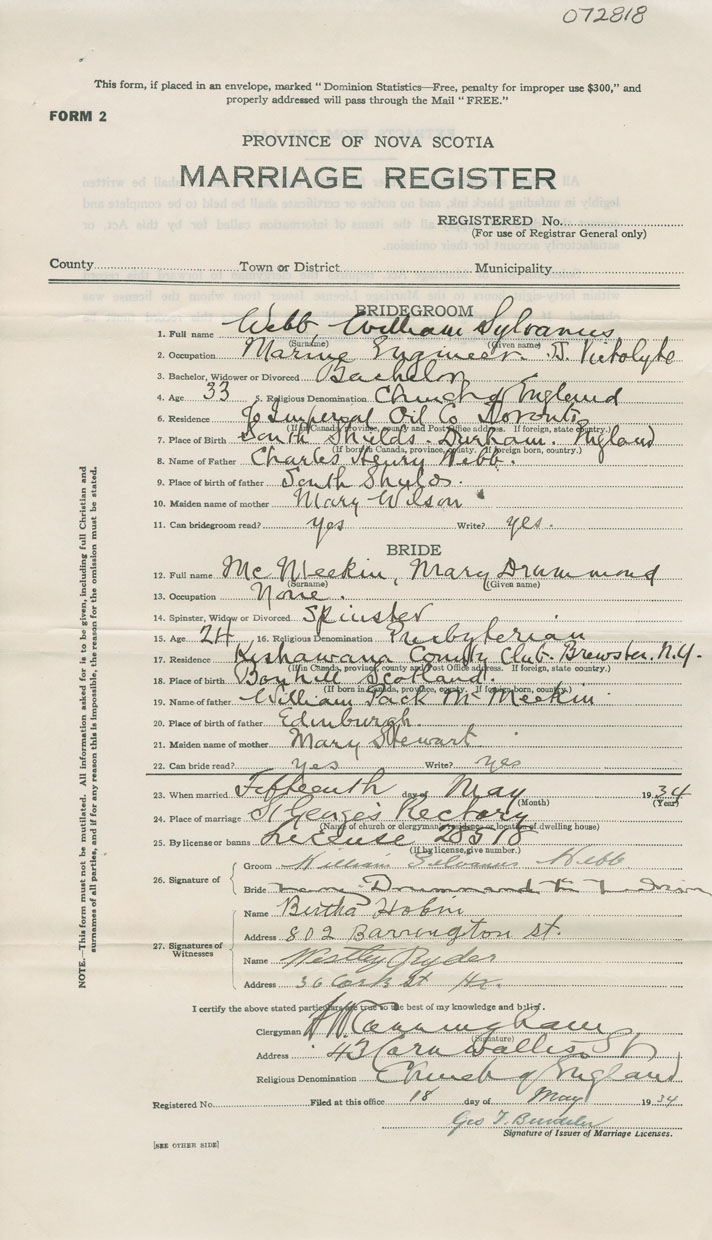 072818
This form, if placed in an envelope, marked "Dominion Statistics—Free, penalty for improper use $300," and
properly addressed will pass through the Mail "FREE."
FORM 2
PROVINCE OF NOVA SCOTIA
MARRIAGE REGISTER
REGISTERED No.
(For use of Registrar General only)
County Town or District Municipality
BRIDEGROOM
1. Full name Webb William Sylvanus
(Surname) (Given name)
2. Occupation Marine Engineer. S. Victolyte
3. Bachelor, Widower or Divorced Bachelor
4. Age 33 5. Religious Denomination Church of England
6. Residence c/o Imperial Oil Co Toronto
(If in Canada, province, county and Post Office address. If foreign, state country.)
7. Place of Birth South Shields. Durham. England
(If born in Canada, province, county. If foreign born, country.)
8. Name of Father Charles Henry Webb.
9. Place of birth of father South Shields.
10. Maiden name of mother Mary Wilson
11. Can bridegroom read? yes Write? yes.
BRIDE
12. Full name McMeekin, Mary Drummond
(Surname) (Given name)
13. Occupation None.
14. Spinster, Widow or Divorced Spinster
15. Age 24 16. Religious Denomination Presbyterian
17. Residence Kishawana County Club. Brewster. N.Y.
(If in Canada, province, county and Post Office address. If foreign, state country.)
18. Place of birth Bonhill Scotland.
(If born in Canada, province, county. If foreign born, country.)
19. Name of father William Jack McMeekin
20. Place of birth of father Edinburgh
21. Maiden name of mother Mary Stewart
22. Can bride read? yes Write? yes
23. When married Fifteenth day of May 1934
(Month) (Year)
24. Place of marriage St George's Rectory
(Name of church or clergyman's residence or location of dwelling house)
25. By license or banns License
(If by license, give number.)
26. Signature of
Groom William Sylvanus Webb
Bride Drummond
27. Signatures of Witnesses
Name Bertha Hobin
Address 802 Barrington St.
Name Westley Ryder
Address 36 Cork St Hx.
I certify the above stated particulars are true to the best of my knowledge and belief.
Clergyman H W Cunningham
(Signature)
Address 43 Cornwallis St
Religious Denomination Church of England
Registered No. Filed at this office 18 day of May 1934
Geo T.
Signature of Issuer of Marriage Licenses.
[SEE OTHER SIDE]
NOTE.—This form must not be mutilated. All information asked for is to be given, including full Christian and
surnames of all parties, and if for any reason this is impossible, the reason for the omission must be stated.